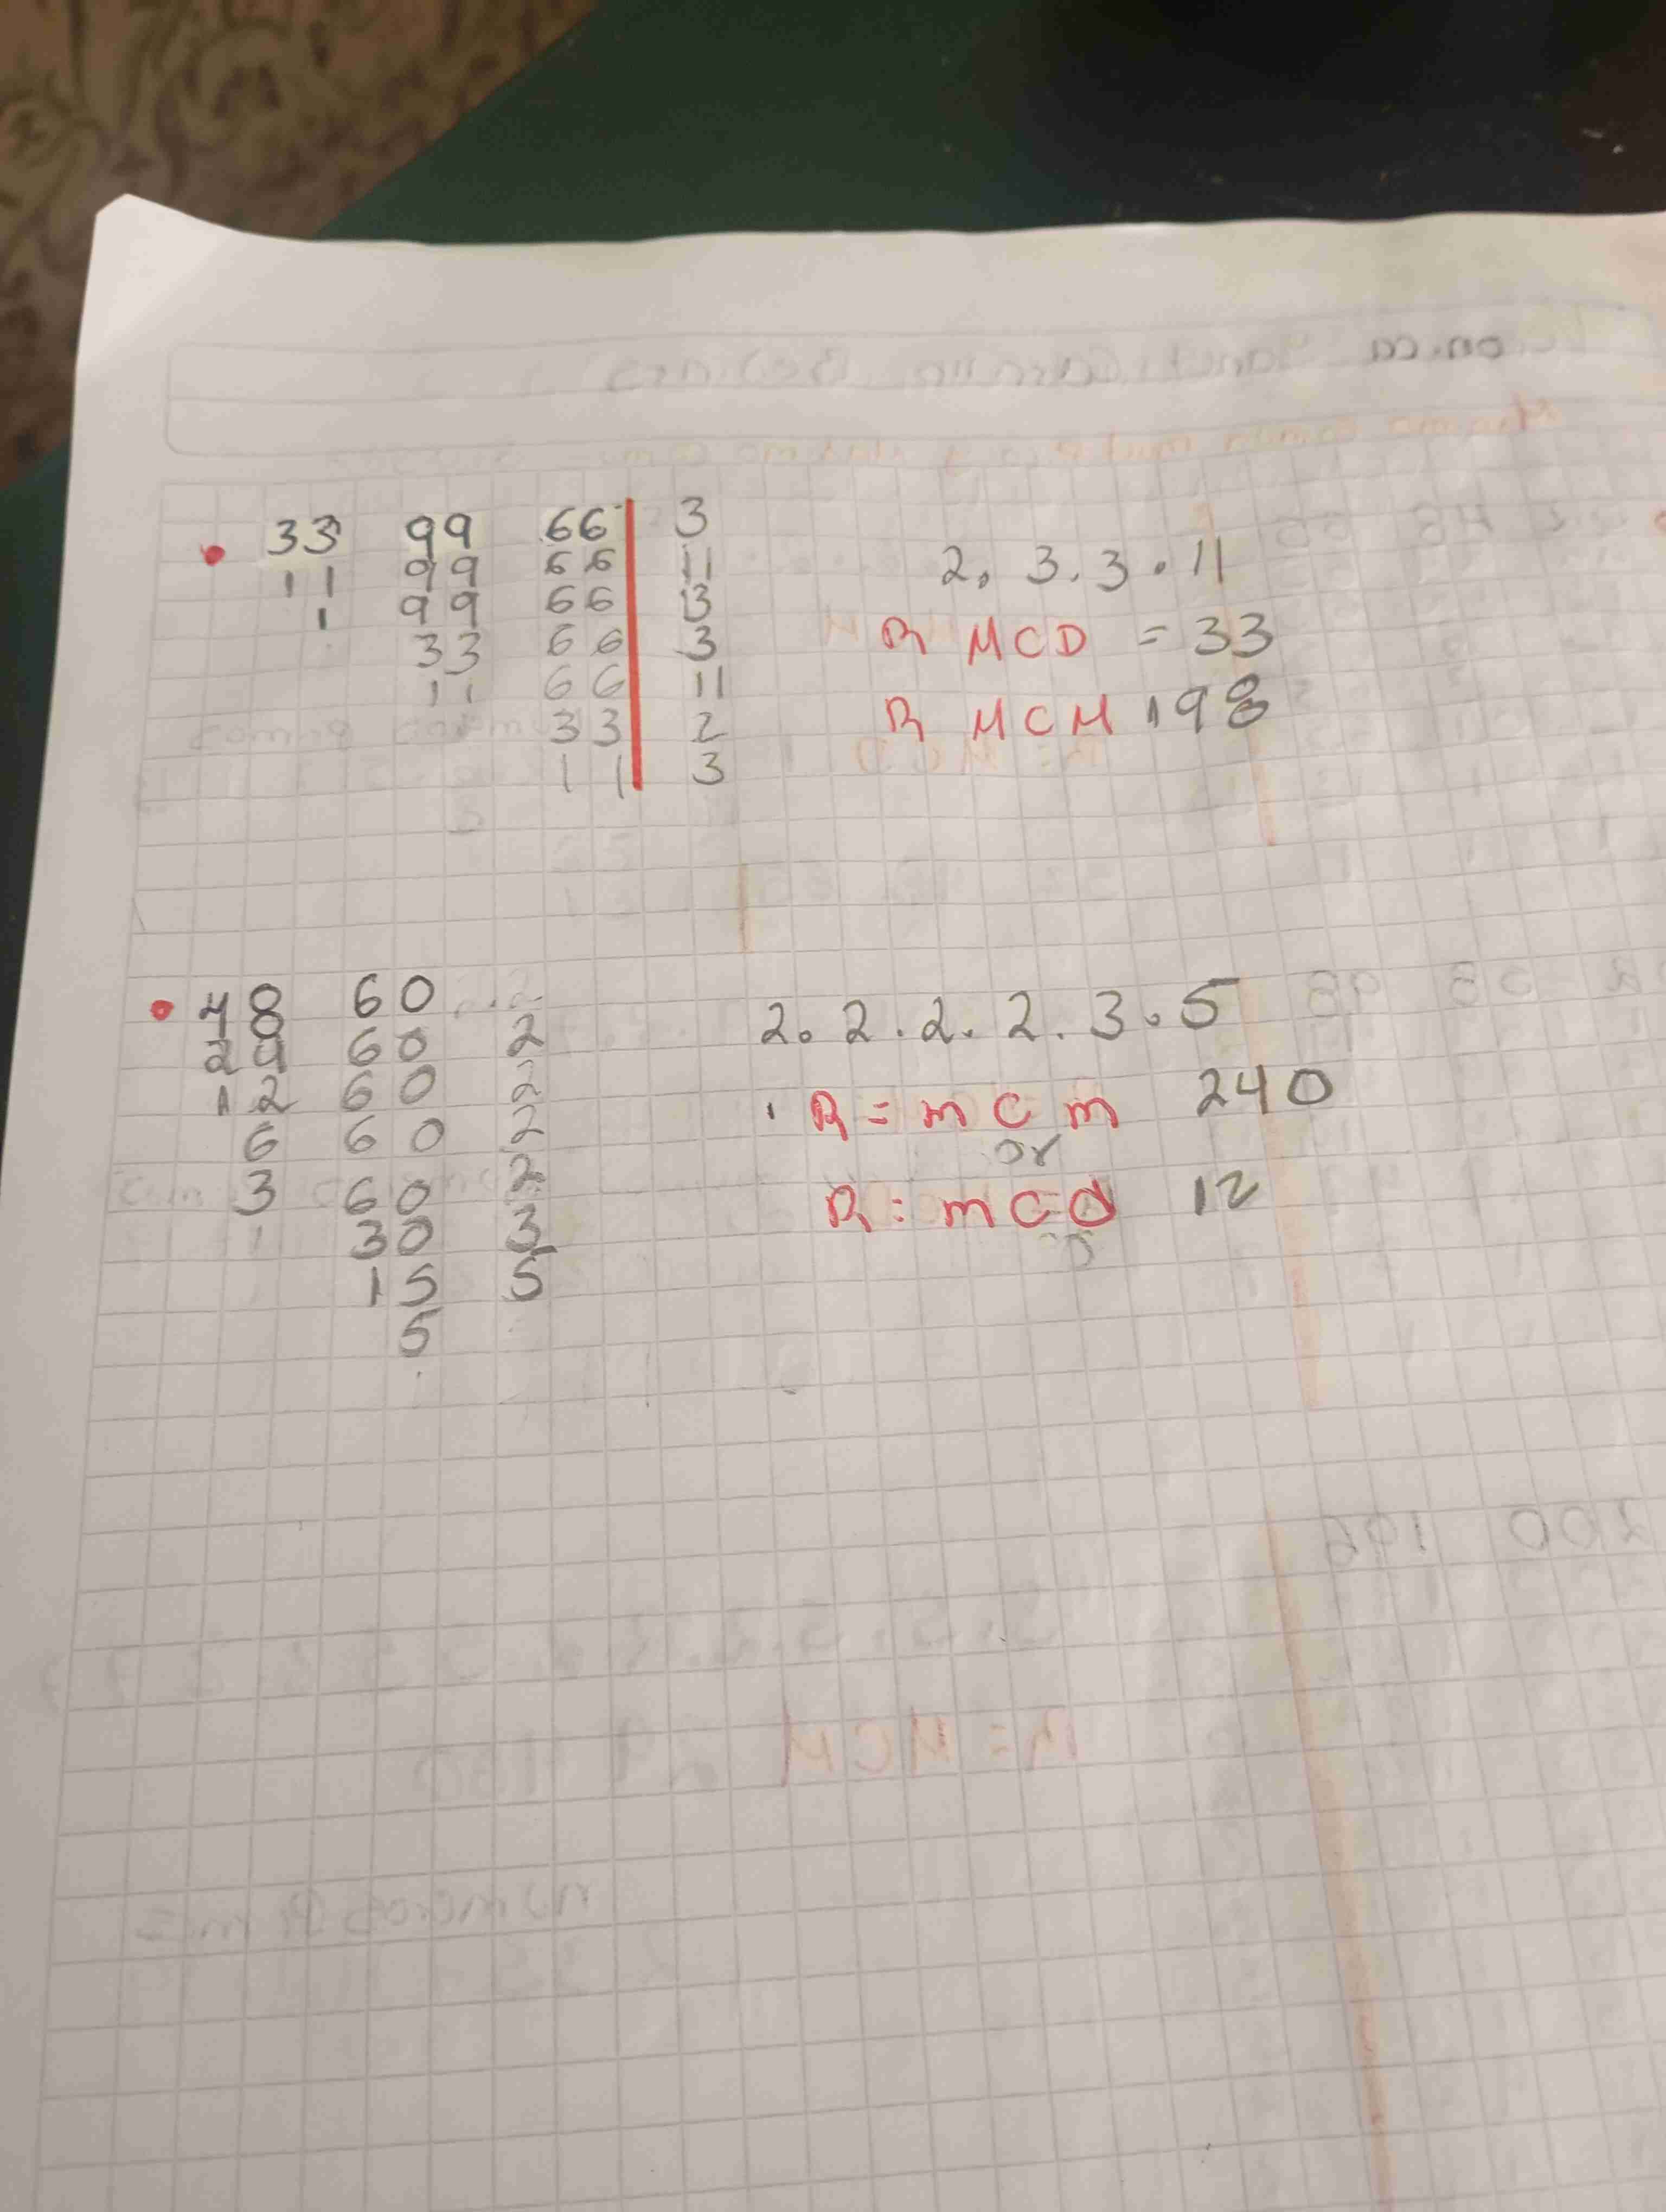 33 99 66 3
11 99 66 11
1 99 66 3
33 66 3
11 66 11
33 2
11 3
2. 3. 3. 11
R MCD = 33
R MCM 198
48 60
24 60 2
12 60 2
6 60 2
3 60 2
1 30 3
15 5
5
2. 2. 2. 2. 3. 5
R = mcm 240
or
R: mcd 12